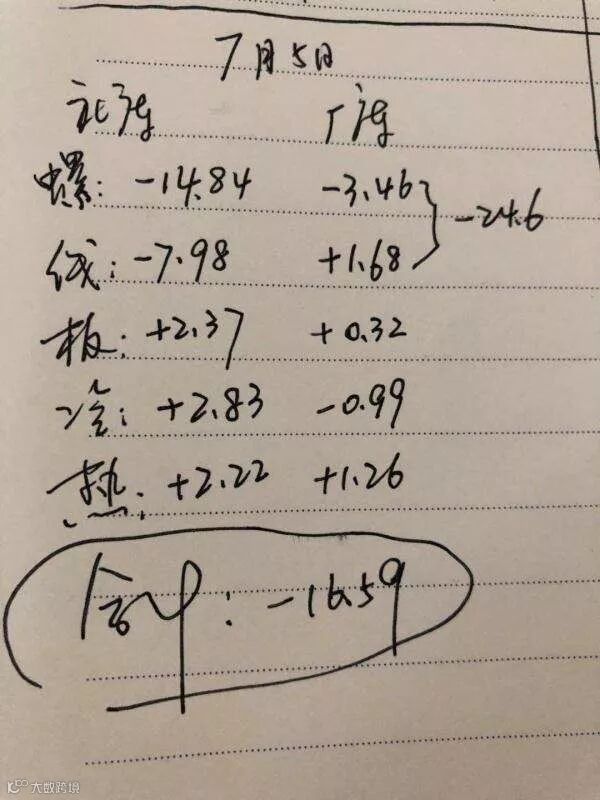 7月5日
社库 厂库
螺: -14.84 -3.46 } -24.6
线: -7.98 +1.68
板: +2.37 +0.32
冷: +2.83 -0.99
热: +2.22 +1.26
合计: -16.59
大数跨境